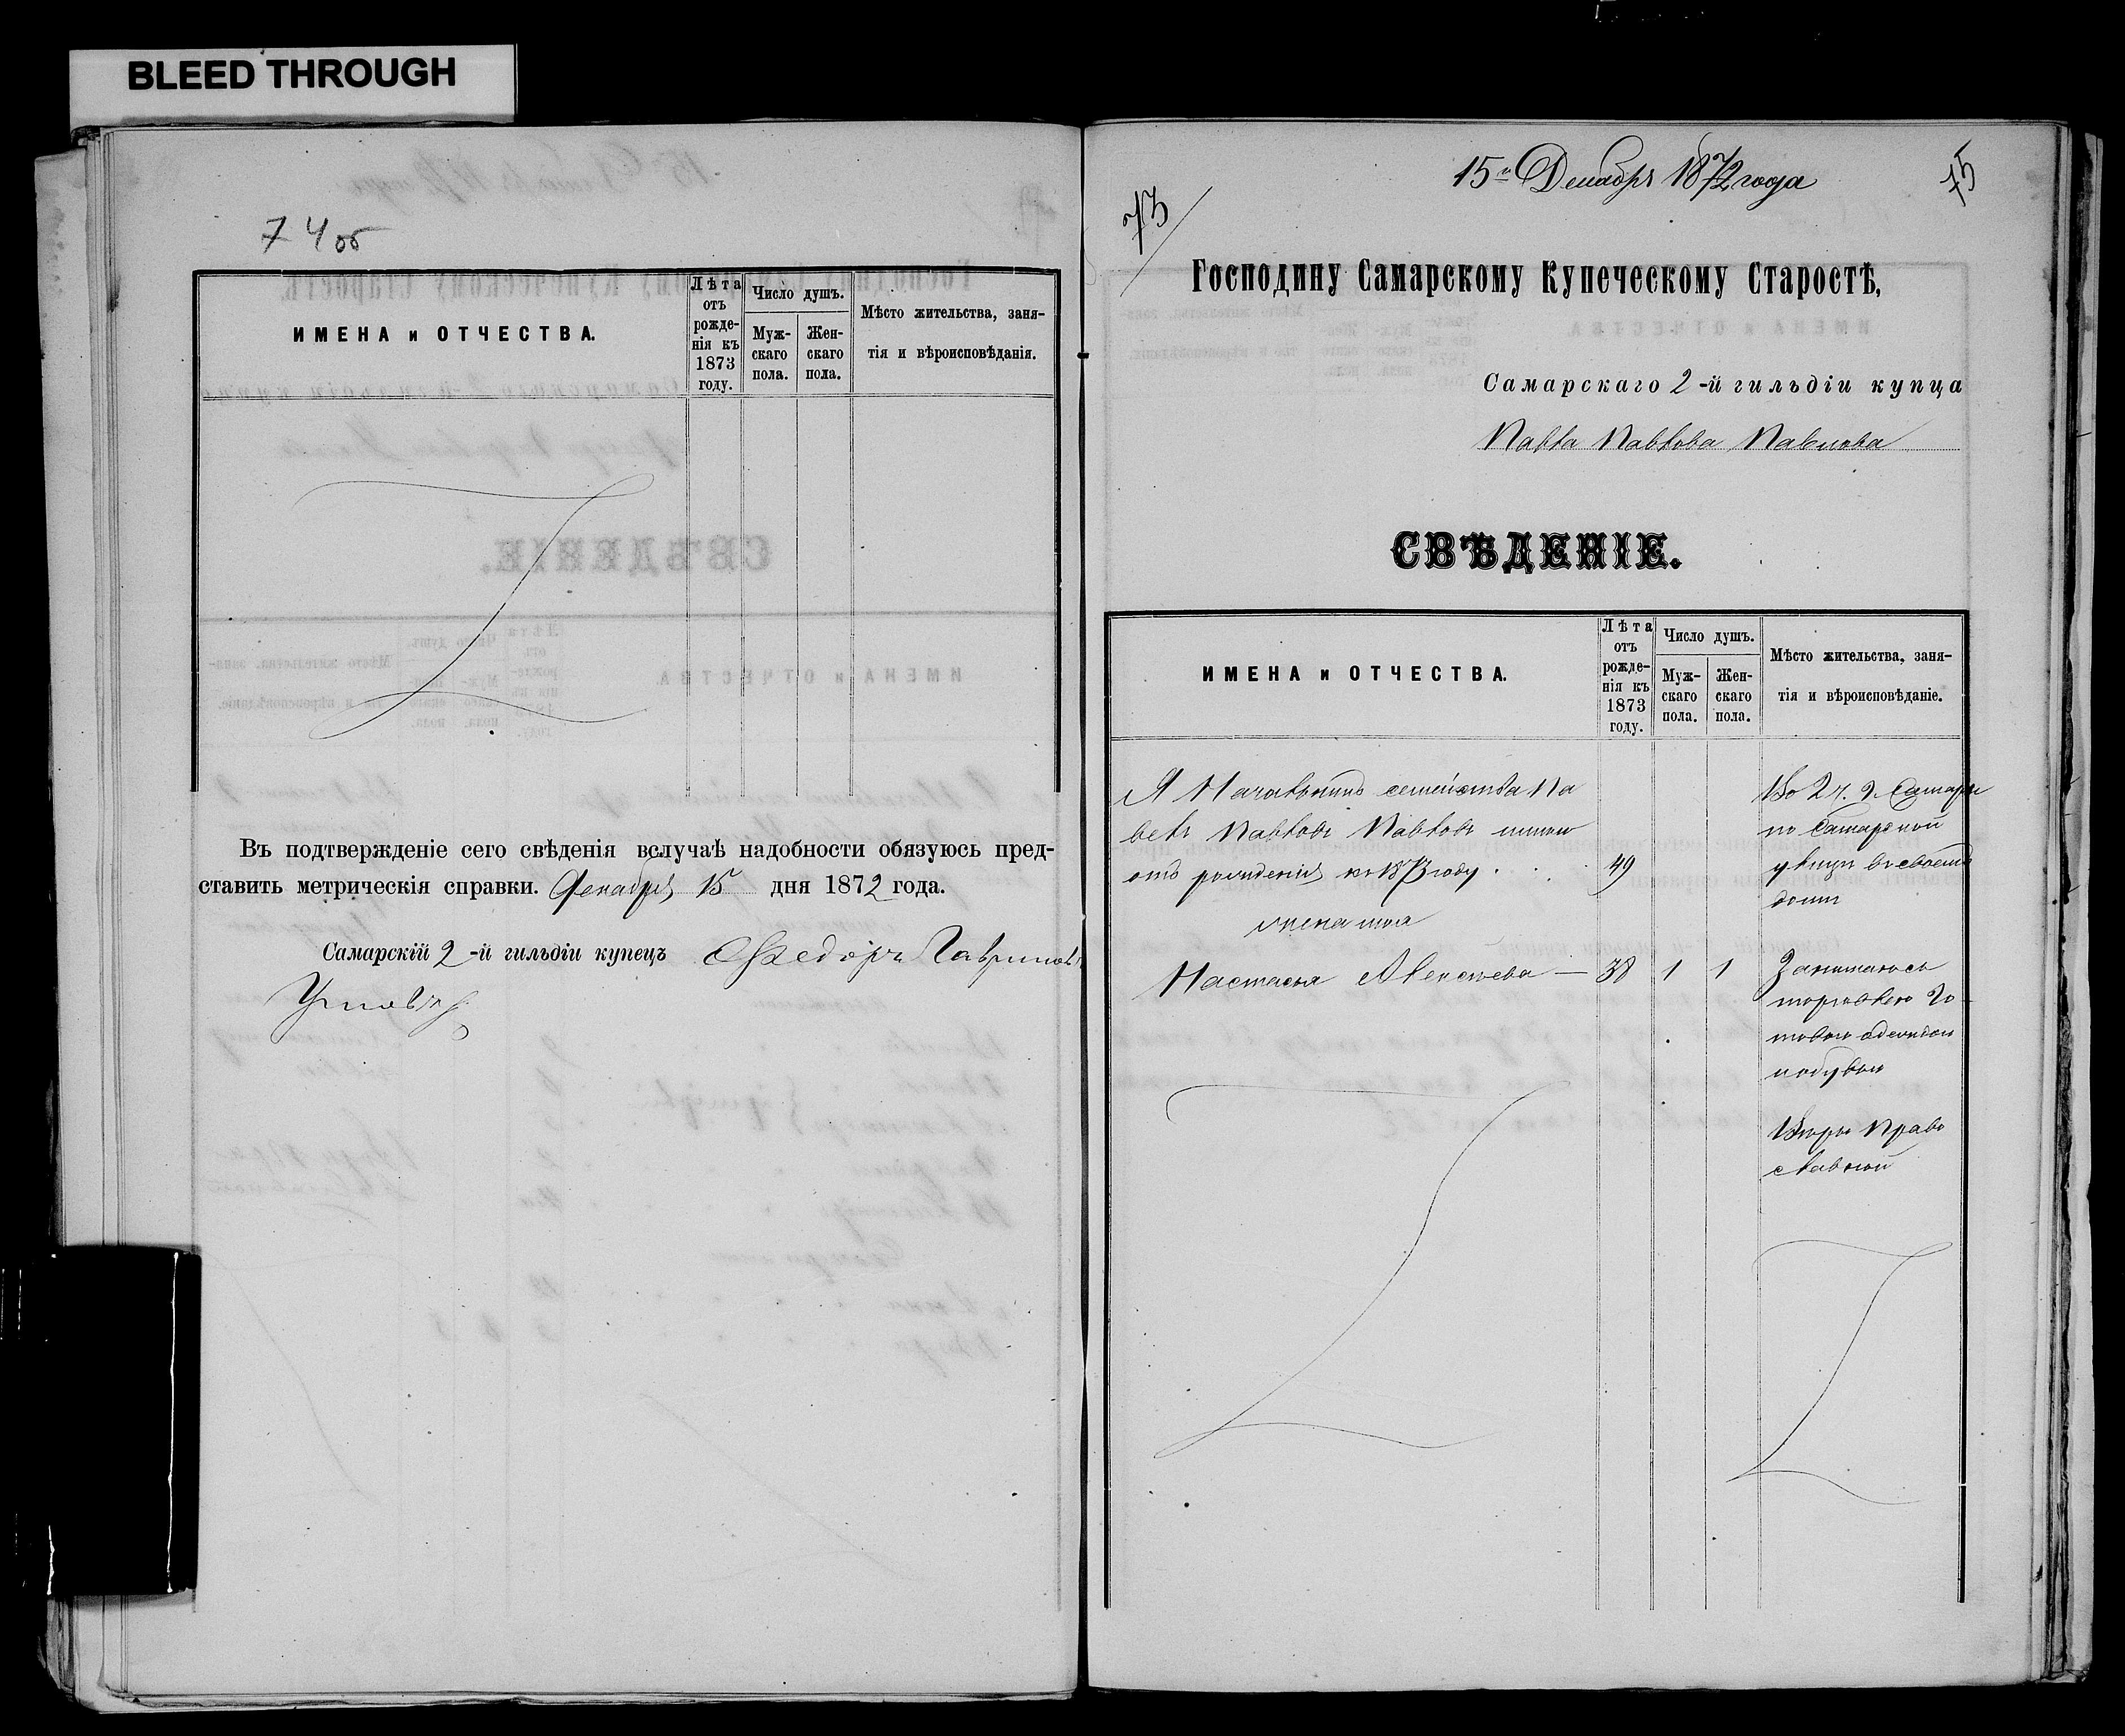 BLEED THROUGH
74об
ИМЕНА и ОТЧЕСТВА.
Лѣта отъ рожденія къ 1873 году.
Число душъ.
Мужскаго пола.
Женскаго пола.
Мѣсто жительства, заня-
тія и вѣроисповѣданія.
Въ подтвержденіе сего свѣденія вслучаѣ надобности обязуюсь пред-
ставить метрическія справки. Декабря 15 дня 1872 года.
Самарскій 2-й гильдіи купецъ Федоръ Гавриловъ
15 Декабря 1872 года
73
75
Господину Самарскому Купеческому Старостѣ,
Самарскаго 2-й гильдіи купца
Павла Павлова Павлова
СВѢДЕНІЕ.
ИМЕНА и ОТЧЕСТВА.
Лѣта
отъ
рожде-
нія къ
1873
году.
Число душъ.
Муж-
скаго
пола.
Жен-
скаго
пола.
Мѣсто жительства, заня-
тія и вѣроисповѣданіе.
Я Начальникъ семейства Па
велъ Павловъ Павловъ
отъ рожденія къ 1873 году 49
жена моя
Настасья Алексѣева — 38 1 1
Во 2 ч. г. Самары
по Самарской
улицѣ въ своемъ
домѣ
Занимаюсь
торговлею го
товою одеждою
и обувью
Вѣры Право
славной